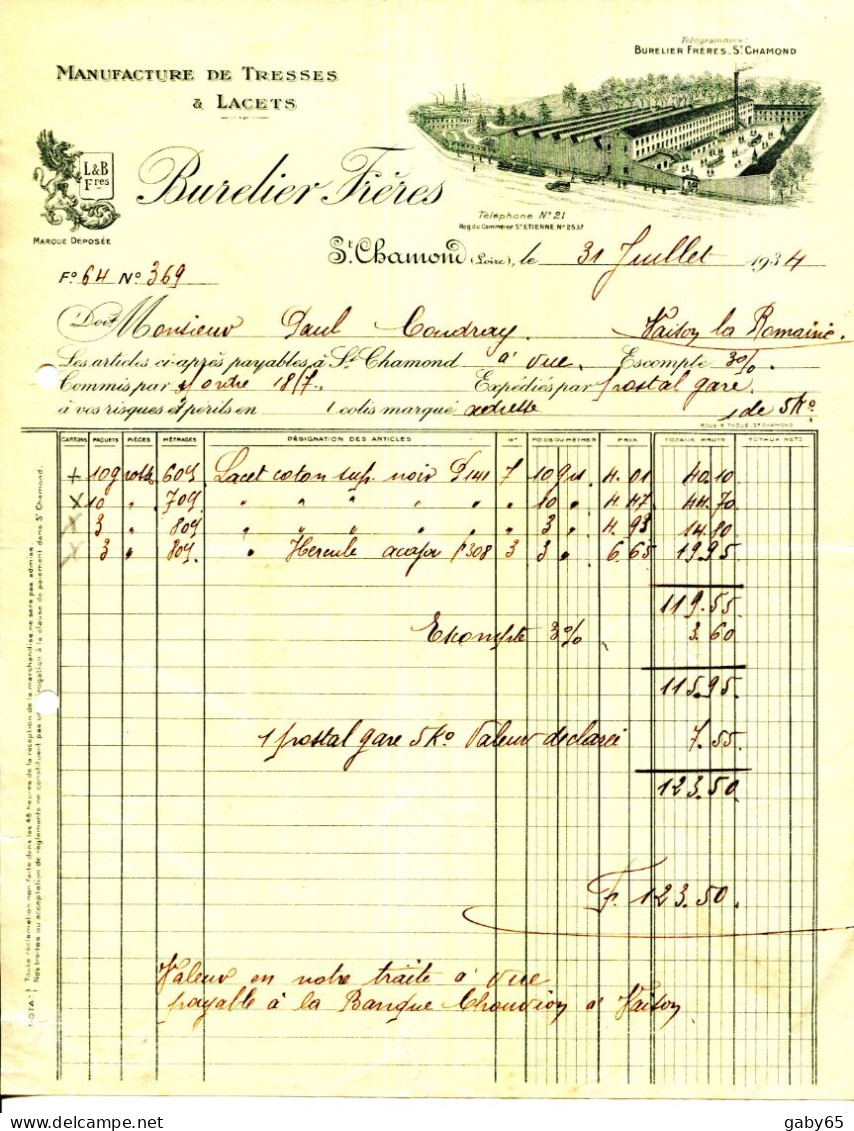 Télégrammes:
BURELIER FRÈRES_ST CHAMOND
MANUFACTURE DE TRESSES
& LACETS
L&B
Fres
MARQUE DÉPOSÉE
Burelier Frères
Téléphone N° 21
Reg. du Commerce ST ETIENNE N° 2537
St Chamond (Loire), le 31 Juillet 1934
F° 64 N° 369
Doit Monsieur Paul Coudray. Vaison la Romaine.
Les articles ci-après payables à St Chamond à vue. Escompte 3%.
Commis par s/ ordre 18/7. Expédiés par postal gare.
à vos risques et périls en 1 colis marqué adresse 1 de 5 Ko
CARTONS PAQUETS PIÈCES MÉTRAGES DÉSIGNATION DES ARTICLES Nos POIDS OU MÈTRES PRIX TOTAUX BRUTS TOTAUX NETS
+ 10 gross 60 Lacet coton sup. noir 141 7 10 gr 4.01 40.10
x 10 " 70 " " " " " 10 " 4.47 44.70
x 3 " 80 " " " " " 3 " 4.93 14.80
x 3 " 80 " Hercule acajou 308 3 3 " 6.65 19.95
119.55
Escompte 3% 3.60
115.95
1 postal gare 5 Ko Valeur déclarée 7.55
123.50
F. 123.50.
Valeur en notre traite à vue
payable à la Banque Chouvion à Vaison
NOTA : Toute réclamation non faite dans les 48 heures de la réception de la marchandise ne sera pas admise.
Nos traites ou acceptation de règlements ne constituent pas dérogation à la clause de paiement dans St Chamond.
gaby65